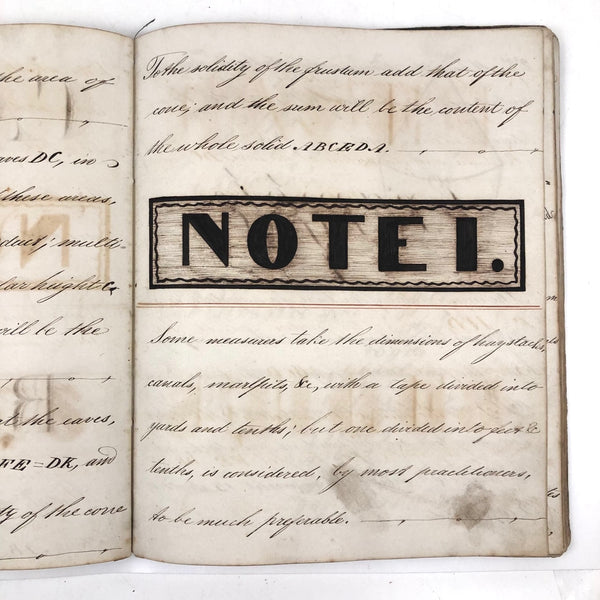 the area of
aves DC, in
these areas,
duct; multi-
lar height G
will be the
at the eaves,
FE=DK, and
ty of the cone
To the solidity of the frustum add that of the
cone; and the sum will be the content of
the whole solid ABCEDA.
NOTE I.
Some measurers take the dimensions of haystacks,
canals, marlpits, &c, with a tape divided into
yards and tenths; but one divided into feet &
tenths, is considered, by most practitioners,
to be much preferable.